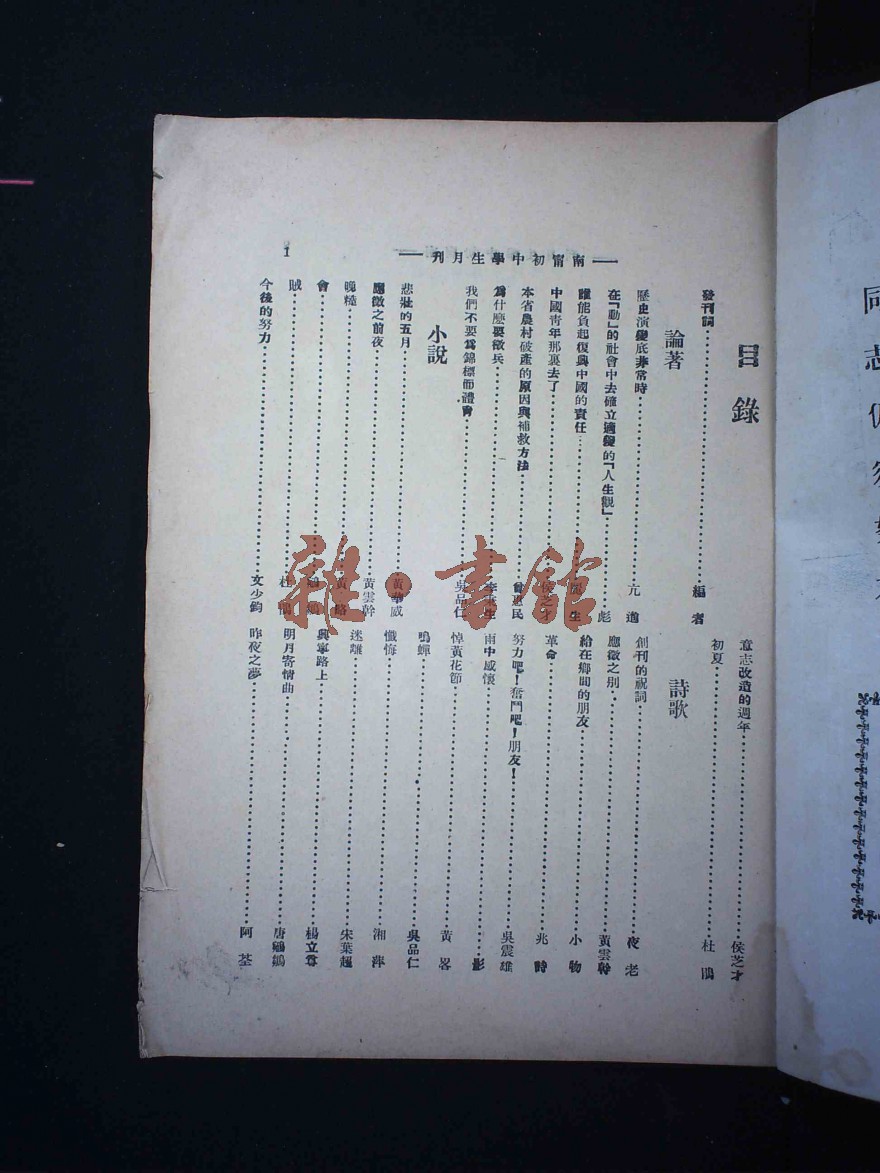 同志仍須努力
南甯初中學生月刊
1
目錄
發刊詞 編者
論著
歷史演變底非常時 元適
在「動」的社會中去確立適變的「人生觀」 彪
誰能負起復興中國的責任 生
中國靑年那裏去了 侯芝才
本省農村破產的原因與補救方法 曾惠民
爲什麽要徵兵 生
我們不要爲錦標而體育 吳品仁
小說
悲壯的五月 黃華威
應徵之前夜 黃雲幹
晚糙 黃略
會
賊 杜鵑
今後的努力 文少鈞
意志改造的週年 侯芝才
初夏 杜鵑
詩歌
創刊的祝詞 夜老
應徵之別 黃雲幹
給在鄉間的朋友 小物
革命 兆時
努力吧！奮鬥吧！朋友！ 吳震雄
雨中感懷 影
悼黃花節 黃畧
鳴蟬 吳品仁
懺悔 湘萍
迷離 宋葉超
興寧路上 楊立尊
明月寄情曲 唐鶺鴒
昨夜之夢 阿荃
雜·書館